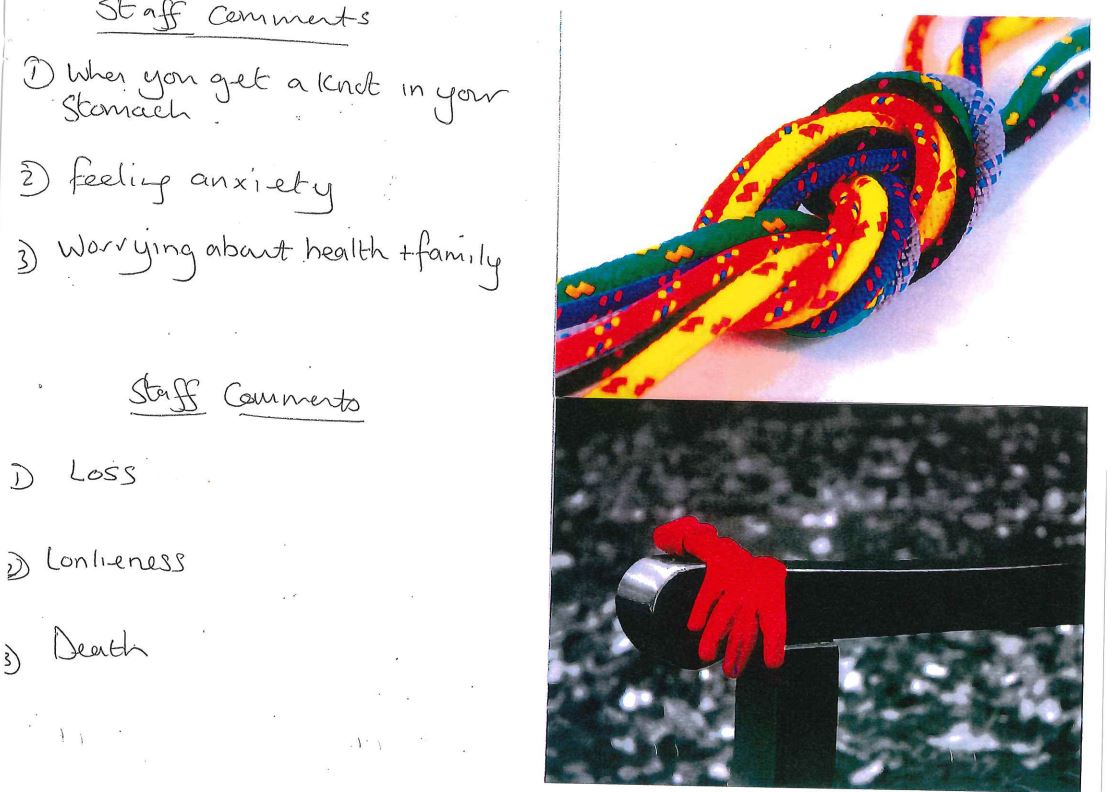 Staff Comments
1) When you get a knot in your
Stomach.
2) feeling anxiety
3) Worrying about health + family
Staff Comments
1) Loss
2) Lonlieness
3) Death